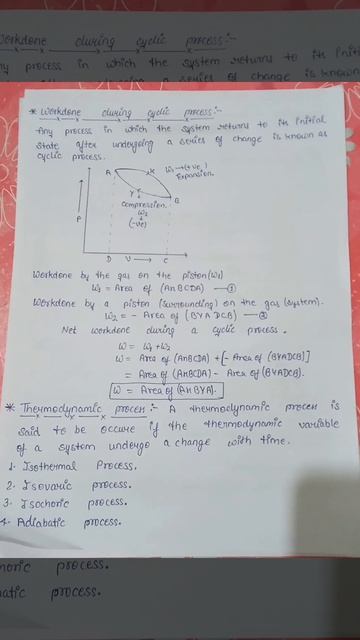 Workdone during cyclic process:-
ny process in which the system returns to its initi
a series of change is known
* Workdone during cyclic process:-
Any process in which the system returns to its initial
state after undergoing a series of change is known as
cyclic process.
A X W₁→(+ve)
Expansion.
Y B
compression.
W₂
(-ve)
P
D V→ C
Workdone by the gas on the piston (W₁)
W₁ = Area of (AXBCDA) —①
Workdone by a piston (surrounding) on the gas (system).
W₂ = - Area of (BYADCB) —②
Net workdone during a cyclic process.
W = W₁+W₂
W = Area of (AXBCDA) + [- Area of (BYADCB)]
= Area of (AXBCDA) - Area of (BYADCB).
W = Area of (AXBYA).
* Thermodynamic process:- A thermodynamic process is
said to be occure if the thermodynamic variable
of a system undergo a change with time.
1. Isothermal Process.
2. Isovaric process.
3. Isochoric process.
4. Adiabatic process.
horic process.
atic process.